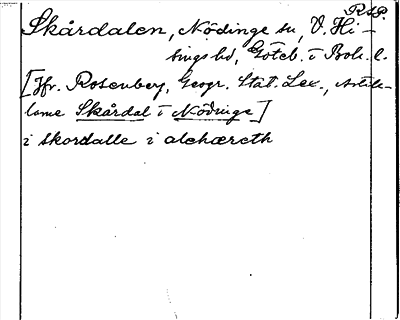 RAP.
Skårdalen, Nödinge sn, V. Hi-
sings hd, Göteb. o Boh. l.
[Jfr. Rosenberg, Geogr. Stat. Lex., Artik-
larne Skårdal i Nödinge]
i skordalle i alehæreth